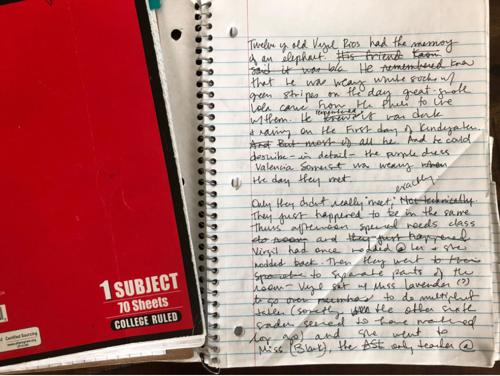 1 SUBJECT
70 Sheets
COLLEGE RULED
Certified Sourcing
Twelve yr old Virgil Rios had the memory
of an elephant. His friend
said it was b/c He remembered knew
that he was wearing white socks w/
green stripes on the day great-uncle
Lolo came from the Phils to live
w/them. He remembered knew it was dark
& rainy on the first day of Kindergarten.
And But most of all he And he could
describe - in detail - the purple dress
Valencia Somerset was wearing when
the day they met.
exactly
Only they didn't really "meet," Not technically.
They just happened to be in the same
Thurs afternoon special needs class
and they just happened
Virgil had once nodded @ her & she
nodded back. Then they went to their
separate to separate parts of the
room - Virgil sat w/ Miss Lavender (?)
to go over numbers to do multiplicat
tables (something the other sixth
graders seemed to have mastered
long ago) and she went to
Miss (Blank), the ASL only teacher @